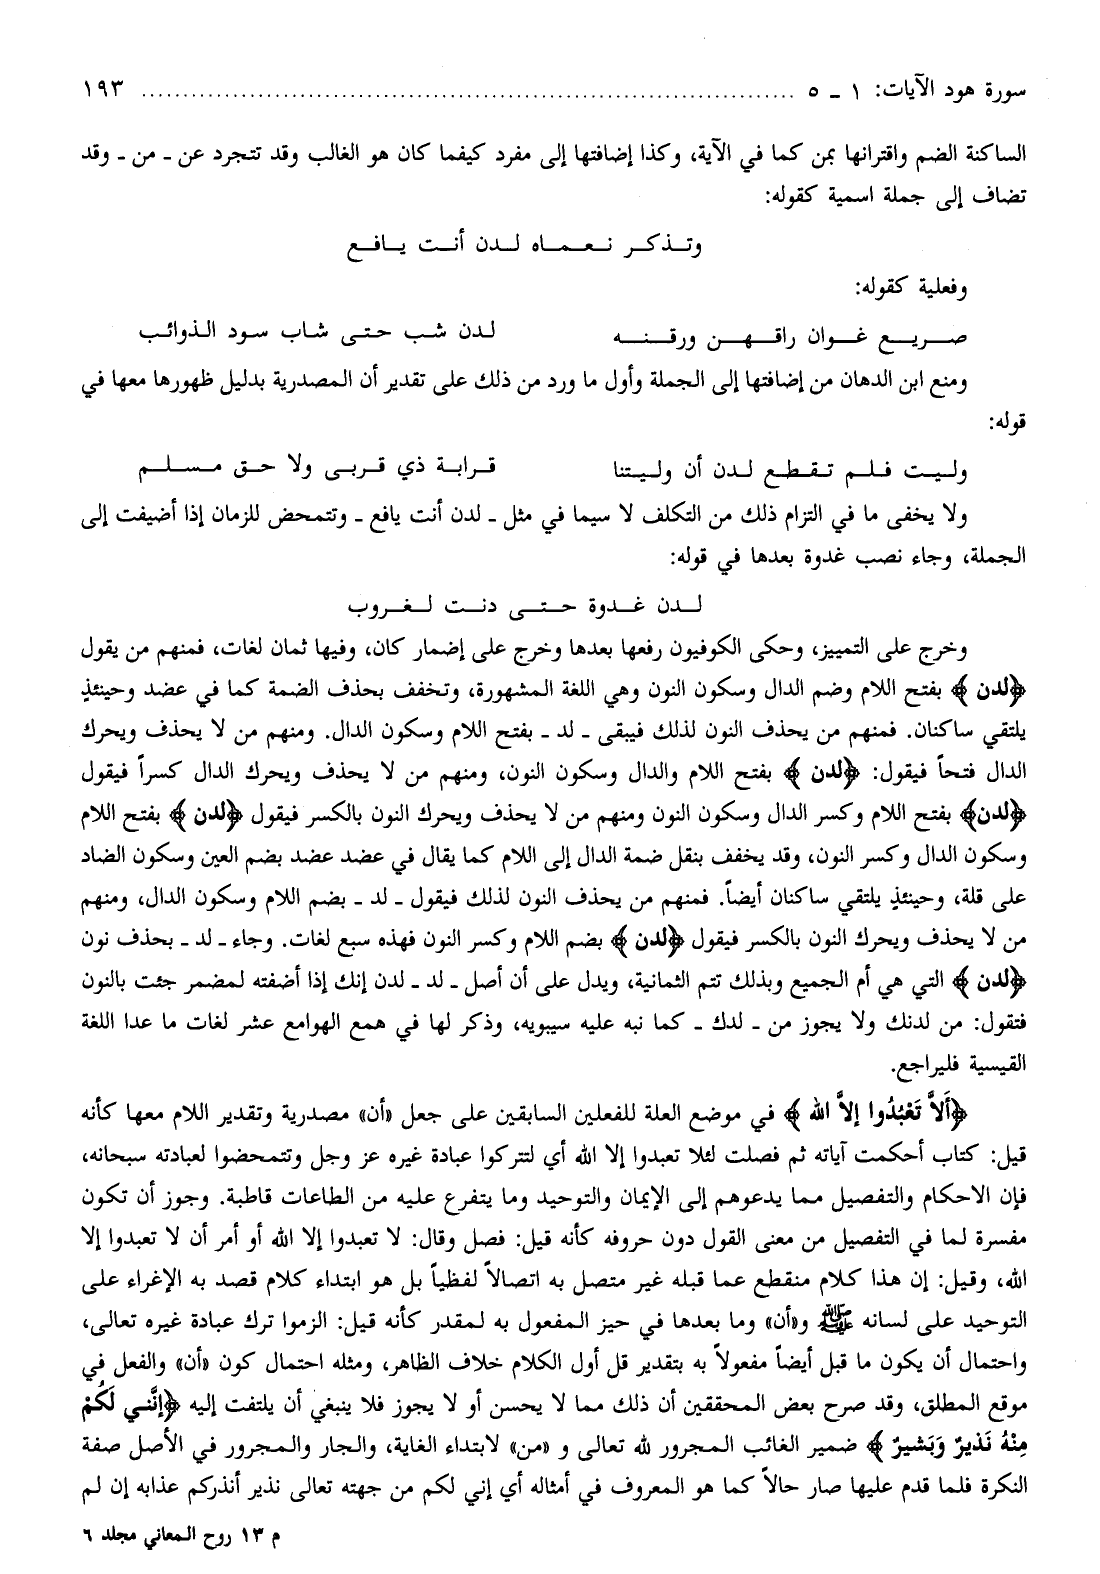 سورة هود الآيات: ١ ـ ٥ ........................................................................ ١٩٣
الساكنة الضم واقترانها بمن كما في الآية، وكذا إضافتها إلى مفرد كيفما كان هو الغالب وقد تتجرد عن ـ من ـ وقد
تضاف إلى جملة اسمية كقوله:
وتذكر نعماه لدن أنت يافع
وفعلية كقوله:
صريع غوان راقهن ورقنه لدن شب حتى شاب سود الذوائب
ومنع ابن الدهان من إضافتها إلى الجملة وأول ما ورد من ذلك على تقدير أن المصدرية بدليل ظهورها معها في
قوله:
وليت فلم تقطع لدن أن وليتنا قرابة ذي قربى ولا حق مسلم
ولا يخفى ما في التزام ذلك من التكلف لا سيما في مثل ـ لدن أنت يافع ـ وتتمحض للزمان إذا أضيفت إلى
الجملة، وجاء نصب غدوة بعدها في قوله:
لدن غدوة حتى دنت لغروب
وخرج على التمييز، وحكى الكوفيون رفعها بعدها وخرج على إضمار كان، وفيها ثمان لغات، فمنهم من يقول
﴿لدن﴾ بفتح اللام وضم الدال وسكون النون وهي اللغة المشهورة، وتخفف بحذف الضمة كما في عضد وحينئذٍ
يلتقي ساكنان. فمنهم من يحذف النون لذلك فيبقى ـ لد ـ بفتح اللام وسكون الدال. ومنهم من لا يحذف ويحرك
الدال فتحاً فيقول: ﴿لدن﴾ بفتح اللام والدال وسكون النون، ومنهم من لا يحذف ويحرك الدال كسراً فيقول
﴿لدن﴾ بفتح اللام وكسر الدال وسكون النون ومنهم من لا يحذف ويحرك النون بالكسر فيقول ﴿لدن﴾ بفتح اللام
وسكون الدال وكسر النون، وقد يخفف بنقل ضمة الدال إلى اللام كما يقال في عضد عضد بضم العين وسكون الضاد
على قلة، وحينئذٍ يلتقي ساكنان أيضاً. فمنهم من يحذف النون لذلك فيقول ـ لد ـ بضم اللام وسكون الدال، ومنهم
من لا يحذف ويحرك النون بالكسر فيقول ﴿لدن﴾ بضم اللام وكسر النون فهذه سبع لغات. وجاء ـ لد ـ بحذف نون
﴿لدن﴾ التي هي أم الجميع وبذلك تتم الثمانية، ويدل على أن أصل ـ لد ـ لدن إنك إذا أضفته لمضمر جئت بالنون
فتقول: من لدنك ولا يجوز من ـ لدك ـ كما نبه عليه سيبويه، وذكر لها في همع الهوامع عشر لغات ما عدا اللغة
القيسية فليراجع.
﴿أَلاَّ تَعْبُدُوا إلاَّ الله﴾ في موضع العلة للفعلين السابقين على جعل «أن» مصدرية وتقدير اللام معها كأنه
قيل: كتاب أحكمت آياته ثم فصلت لئلا تعبدوا إلا الله أي لتتركوا عبادة غيره عز وجل وتتمحضوا لعبادته سبحانه،
فإن الاحكام والتفصيل مما يدعوهم إلى الإيمان والتوحيد وما يتفرع عليه من الطاعات قاطبة. وجوز أن تكون
مفسرة لما في التفصيل من معنى القول دون حروفه كأنه قيل: فصل وقال: لا تعبدوا إلا الله أو أمر أن لا تعبدوا إلا
الله، وقيل: إن هذا كلام منقطع عما قبله غير متصل به اتصالاً لفظياً بل هو ابتداء كلام قصد به الإغراء على
التوحيد على لسانه ﷺ و«أن» وما بعدها في حيز المفعول به لمقدر كأنه قيل: الزموا ترك عبادة غيره تعالى،
واحتمال أن يكون ما قبل أيضاً مفعولاً به بتقدير قل أول الكلام خلاف الظاهر، ومثله احتمال كون «أن» والفعل في
موقع المطلق، وقد صرح بعض المحققين أن ذلك مما لا يحسن أو لا يجوز فلا ينبغي أن يلتفت إليه ﴿إنَّني لَكُمْ
مِنْهُ نَذيرٌ وَبَشيرٌ﴾ ضمير الغائب المجرور لله تعالى و «من» لابتداء الغاية، والجار والمجرور في الأصل صفة
النكرة فلما قدم عليها صار حالاً كما هو المعروف في أمثاله أي إني لكم من جهته تعالى نذير أنذركم عذابه إن لم
م ١٣ روح المعاني مجلد ٦